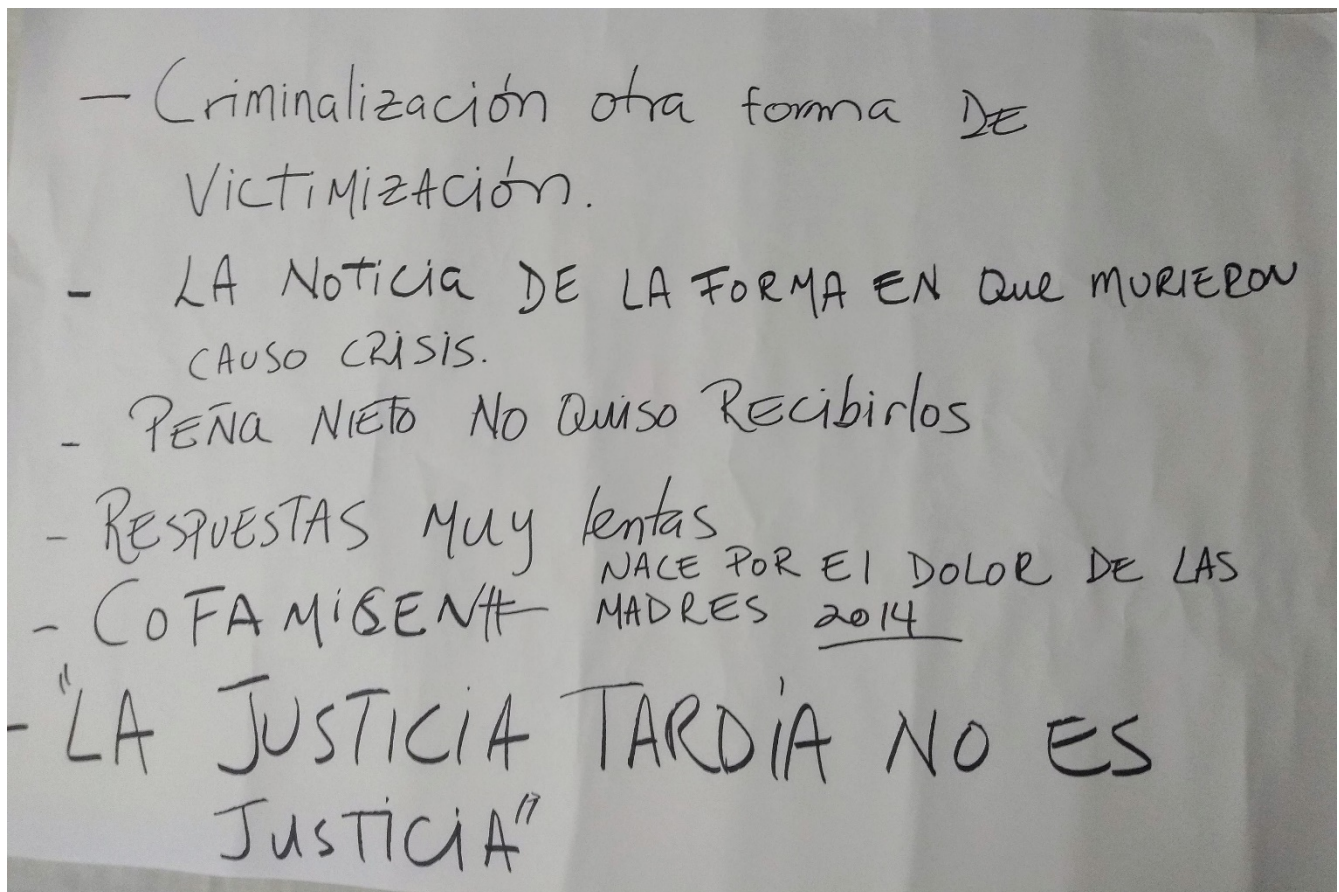 - Criminalización otra forma DE
VICTIMIZACIÓN.
- LA NOTICIA DE LA FORMA EN QUE MURIERON
CAUSO CRISIS.
- PEÑA NIETO NO QUISO RECIBIRLOS
- RESPUESTAS MUY lentas
- COFAMIGENH NACE POR EL DOLOR DE LAS
MADRES 2014
- "LA JUSTICIA TARDÍA NO ES
JUSTICIA"